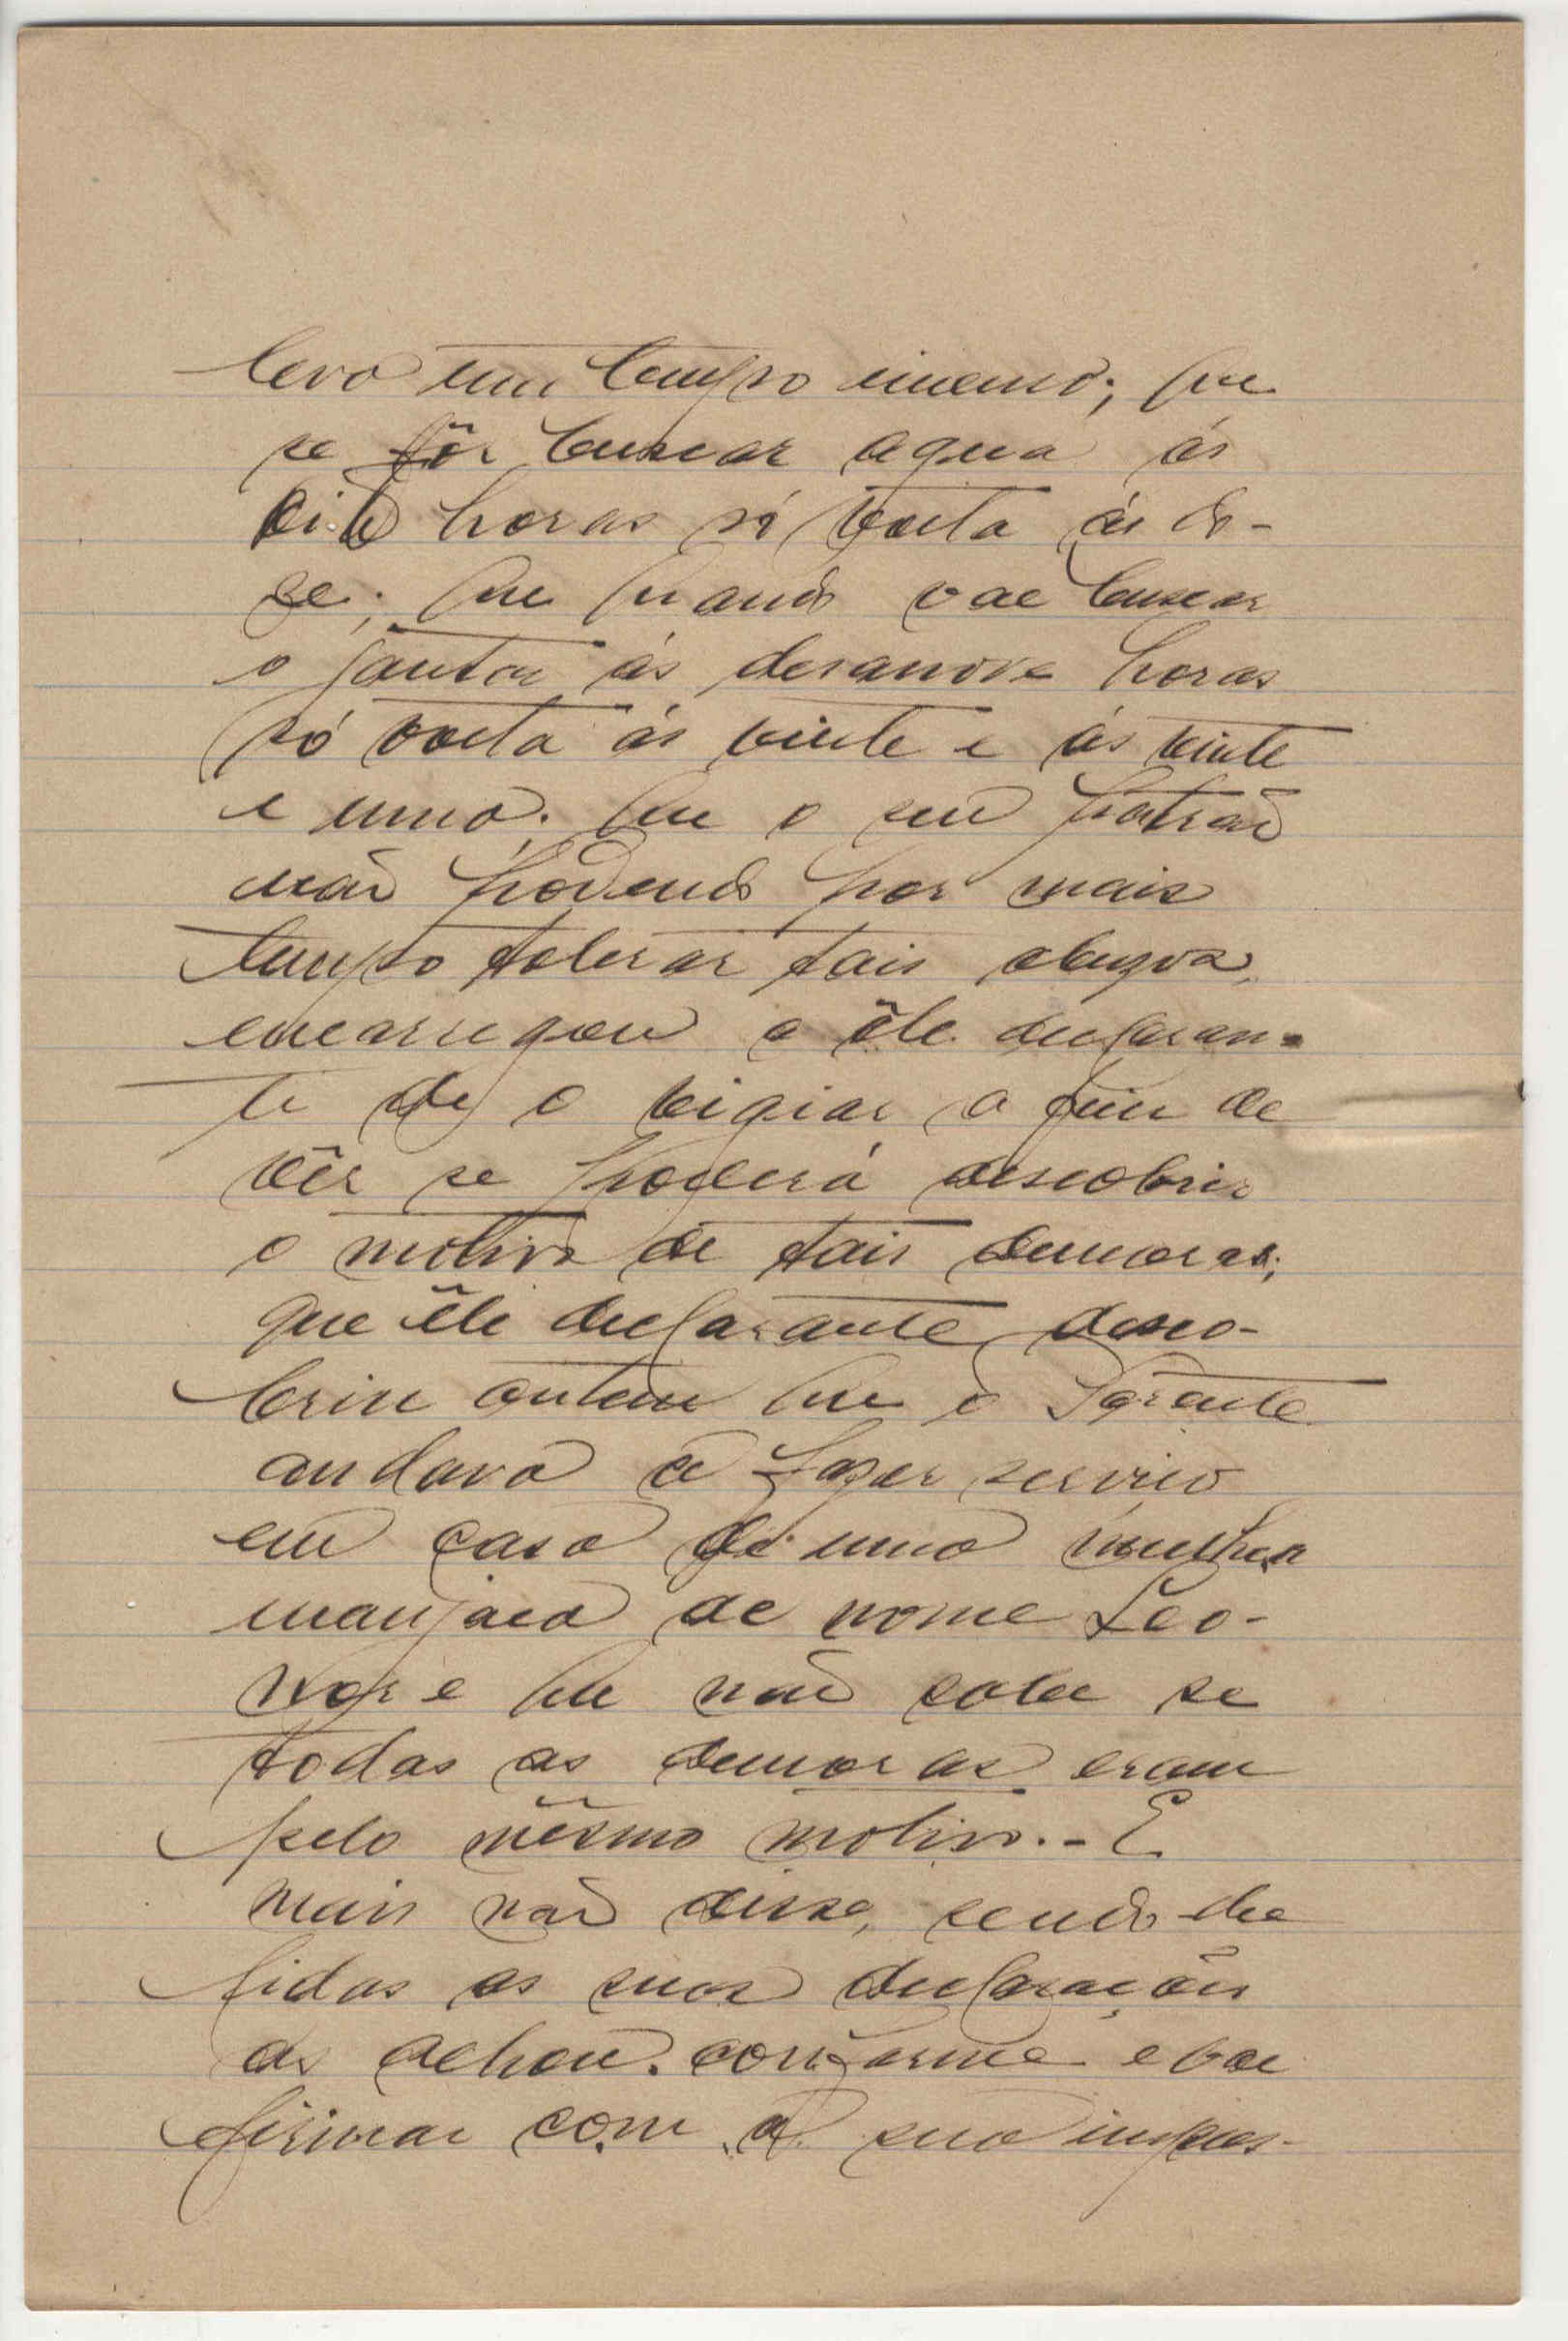 leva um tempo imenso; que
se fôr buscar agua ás
oito horas só volta ás do-
ze; que quando vae buscar
o jantar ás desanove horas
só volta ás vinte e ás vinte
e uma. Que o seu patrão
não podendo por mais
tempo tolerar tais abusos,
encarregou a êle declaran-
te de o vigiar a fim de
vêr se poderá descobrir
o motivo de tais demoras;
que êle declarante desco-
briu ontem que o Parente
andava a fazer serviço
em casa de uma mulher
manjaca de nome Leo-
nor e que não sabe se
todas as demoras eram
pelo mêsmo motivo. - E
mais não disse, sendo-lhe
lidas as suas declarações
as achou conforme e vae
firmar com a sua impres-